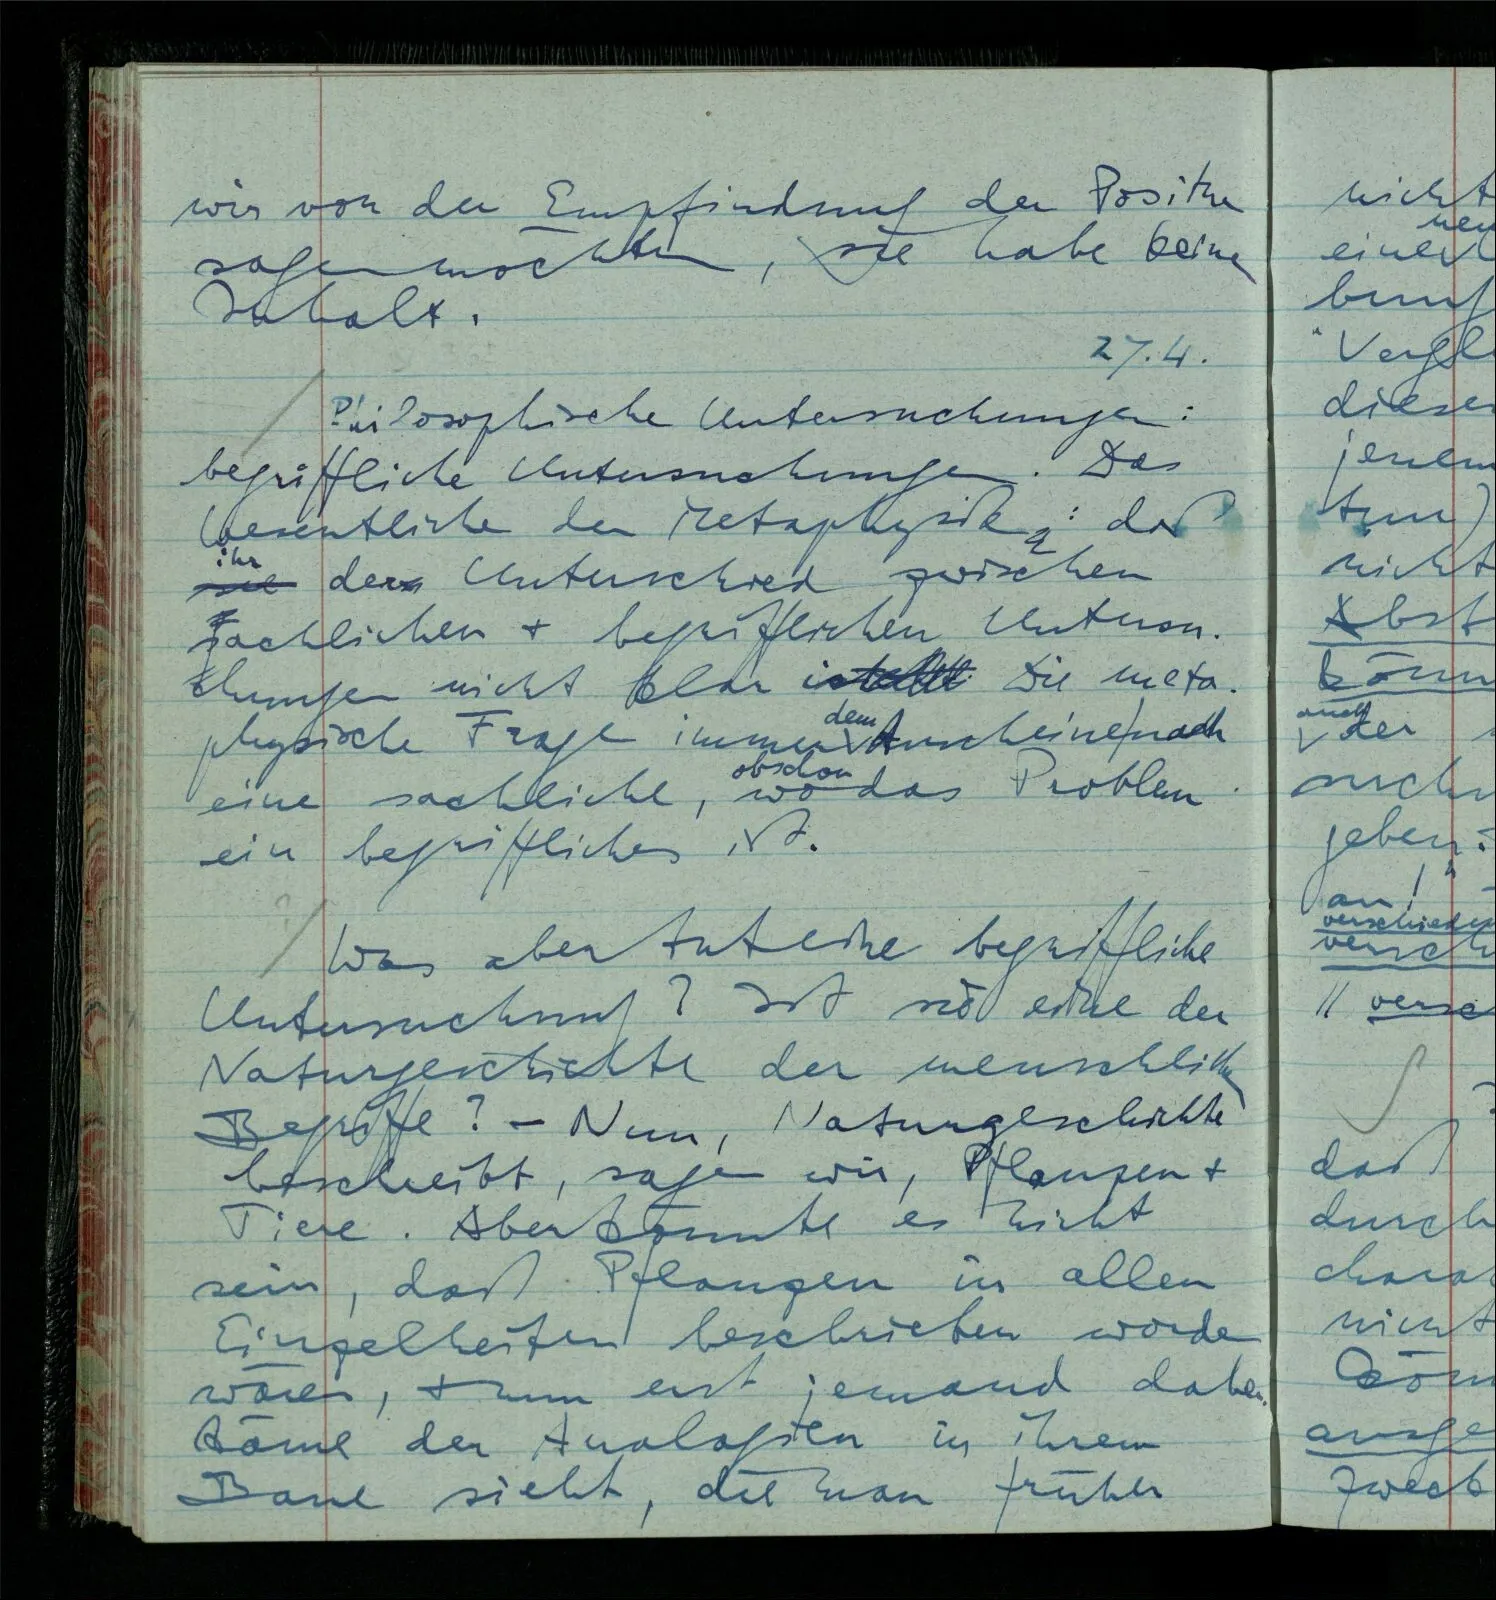 wir von der Empfindung der Position
sagen möchten, sie habe keinen
Inhalt.
27.4.
Philosophische Untersuchungen:
begriffliche Untersuchungen. Das
Wesentliche der Metaphysik: daß
ihr
sie der Unterschied zwischen
sachlichen + begrifflichen Untersu-
chungen nicht klar ist. Die meta-
dem
physische Frage immer Anscheine nach
obschon
eine sachliche, wo das Problem
ein begriffliches ist.
Was aber tut eine begriffliche
Untersuchung? Ist sie eine der
Naturgeschichte der menschlichen
Begriffe? – Nun, Naturgeschichte
beschreibt, sagen wir, Pflanzen +
Tiere. Aber könnte es nicht
sein, daß Pflanzen in allen
Einzelheiten beschrieben worden
wären, + nun erst jemand daher-
käme der Analogien in ihrem
Baue sieht, die man früher
nicht
einer
"Vergl
diesen
jenem
tun)
nicht
Abst
könn
auch
der
geben:
an!"
verschieden
versch
// versc
daß
durch
charak
nicht
köm
ausge
zweck